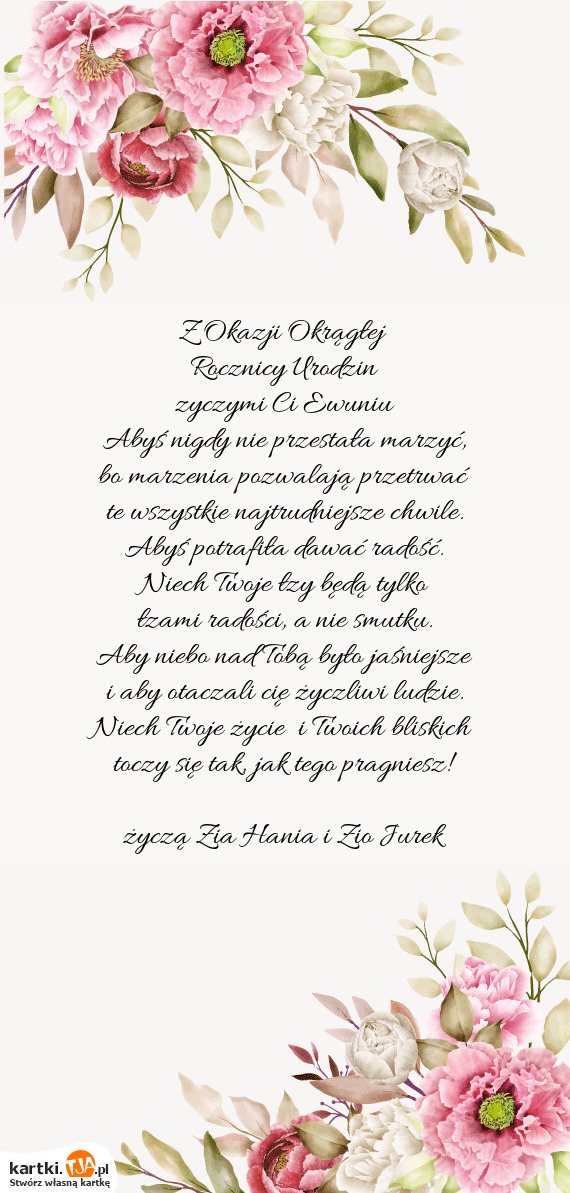 Z Okazji Okrągłej
Rocznicy Urodzin
zyczymi Ci Ewuniu
Abyś nigdy nie przestała marzyć,
bo marzenia pozwalają przetrwać
te wszystkie najtrudniejsze chwile.
Abyś potrafiła dawać radość.
Niech Twoje łzy będą tylko
łzami radości, a nie smutku.
Aby niebo nad Tobą było jaśniejsze
i aby otaczali cię życzliwi ludzie.
Niech Twoje życie i Twoich bliskich
toczy się tak, jak tego pragniesz!
życzą Zia Hania i Zio Jurek
kartki.TJA.pl
Stwórz własną kartkę